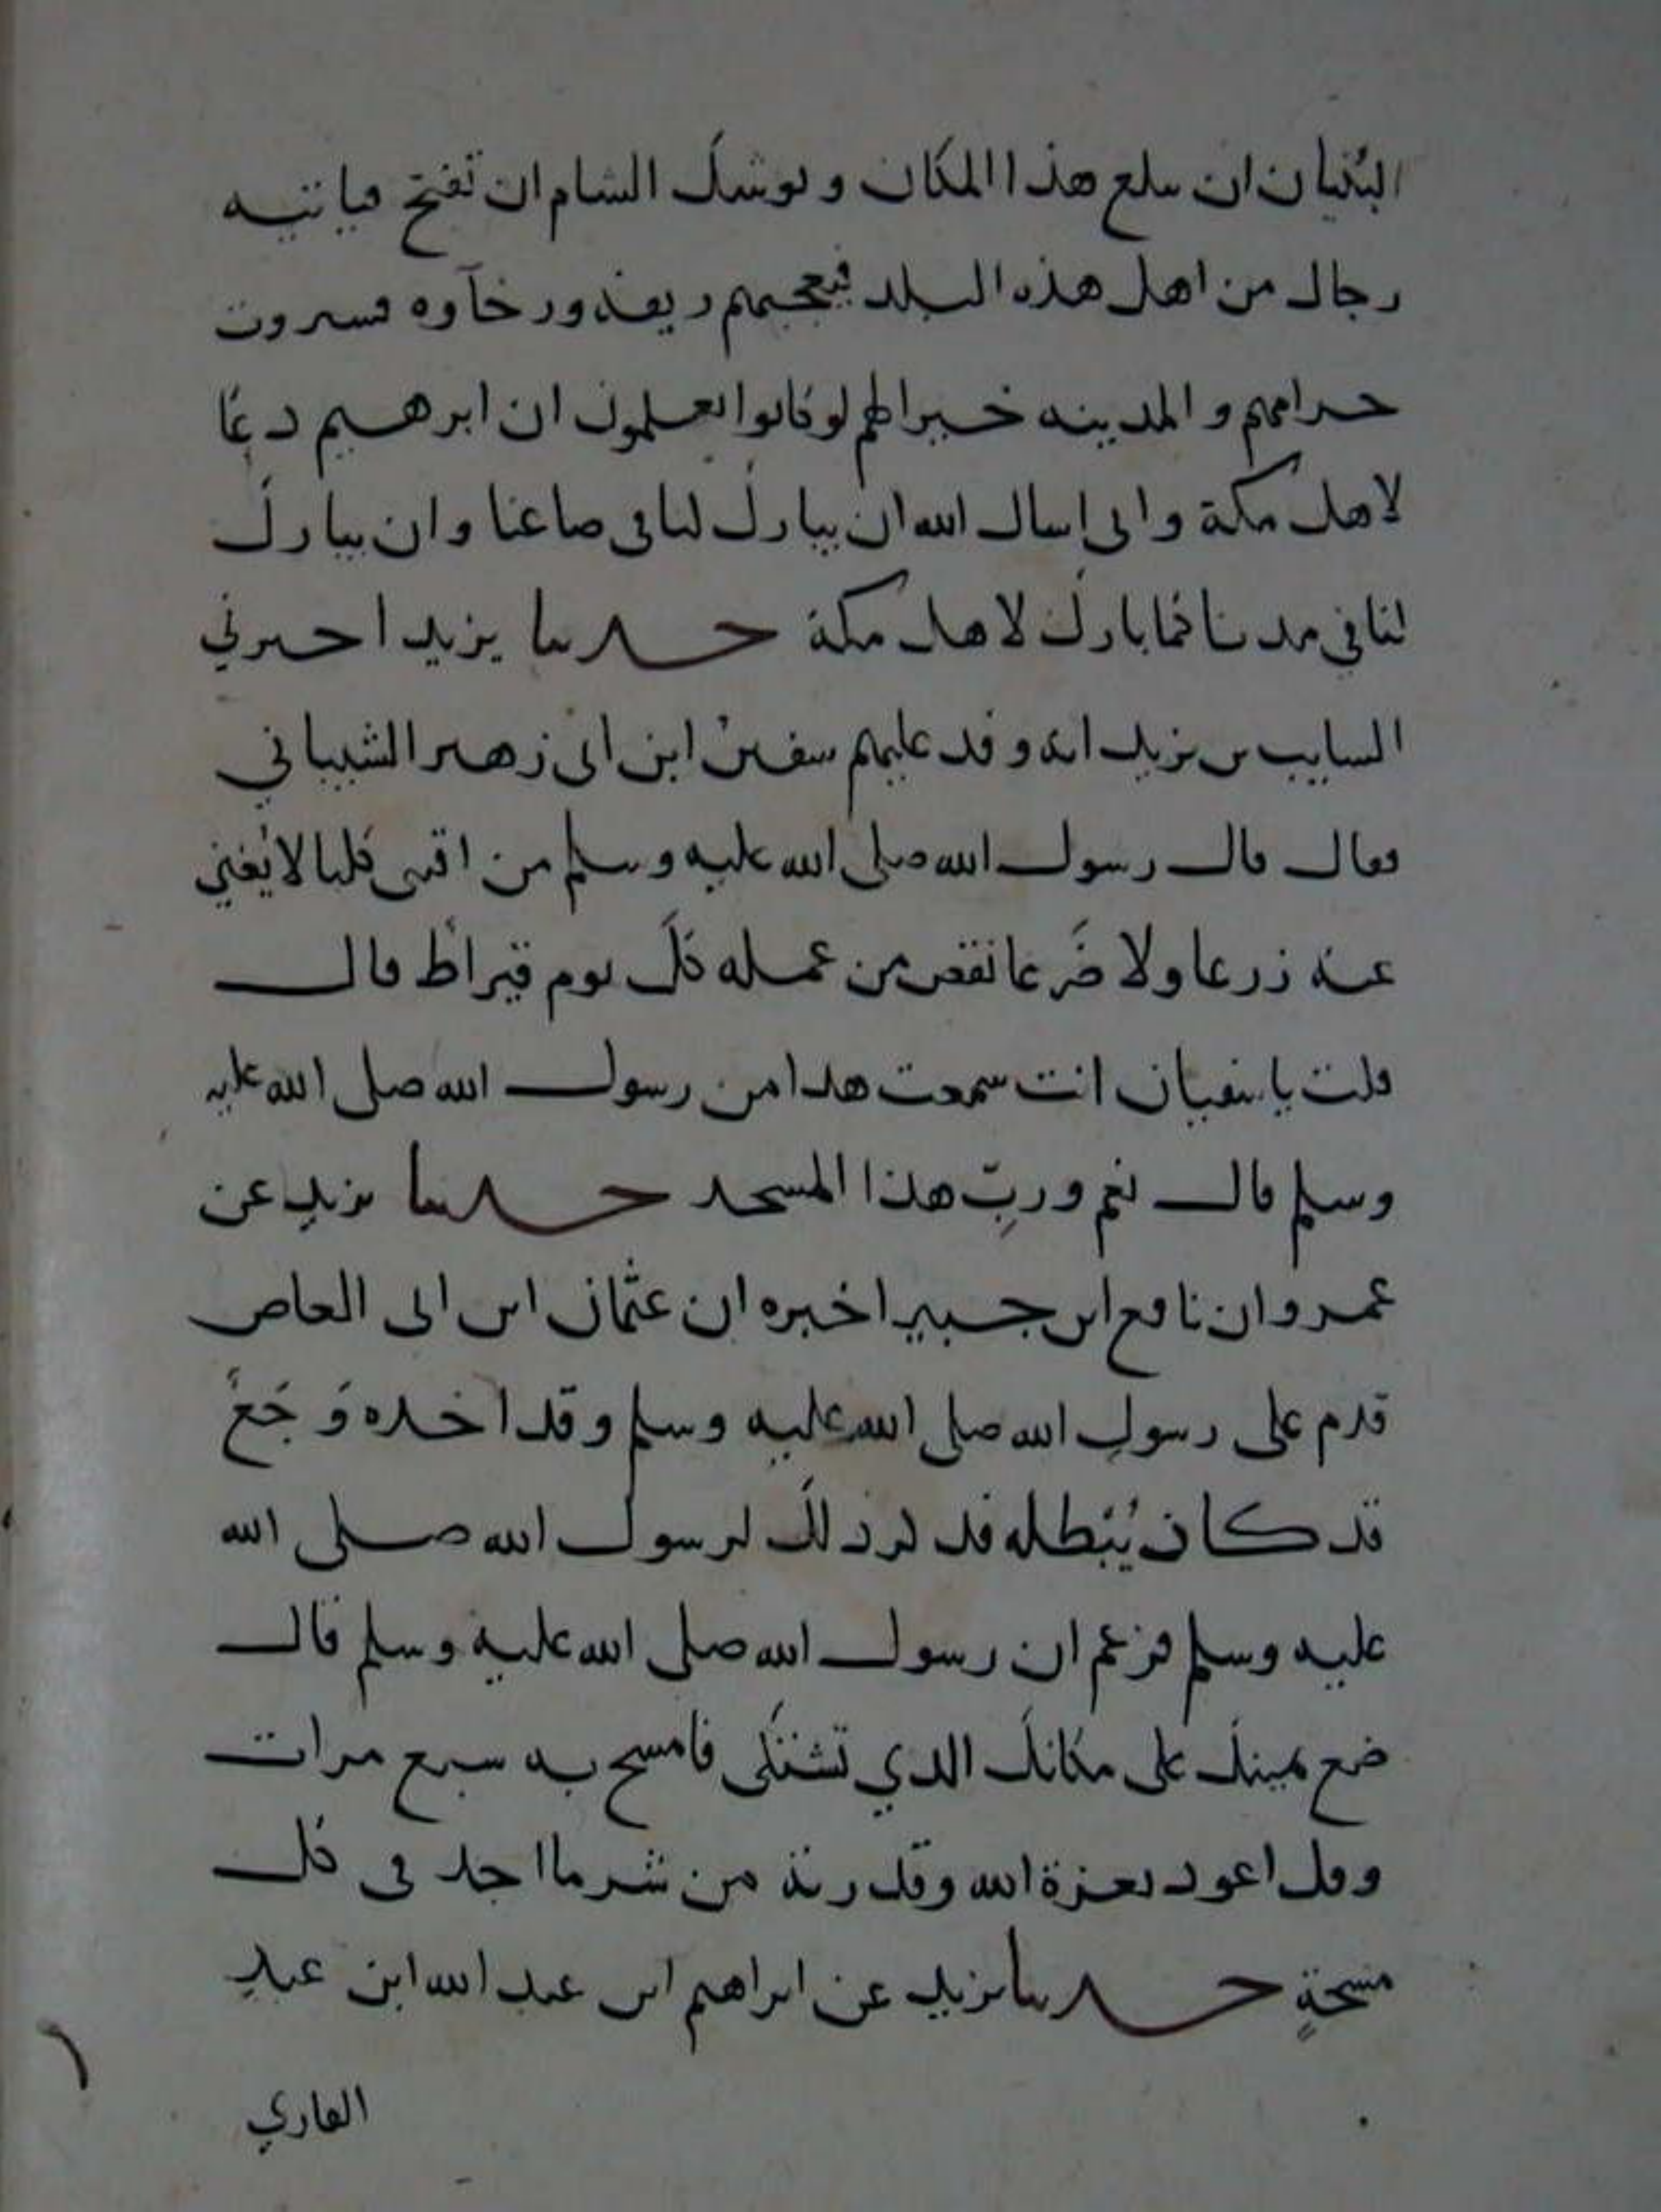 البُنيان ان يبلغ هذا المكان ويوشك الشام ان تفتح فياتيه
رجال من اهل هذه البلد فيعجبهم ريفه ورخآوه فيسيرون
حراميهم والمدينه خير لهم لو كانوا يعلمون ان ابرهيم دعا
لاهل مكة واني اسال الله ان يبارك لنا في صاعنا وان يبارك
لنا في مدنا كما بارك لاهل مكة حدثنا يزيد اخبرني
السايب بن يزيد انه وفد عليهم سفين ابن ابي زهير الشيباني
فقال قال رسول الله صلى الله عليه وسلم من اقتنى كلبا لا يُغني
عنه زرعا ولا ضَرعا نقص من عمله كل يوم قيراط قال
قلت يا سفيان انت سمعت هذا من رسول الله صلى الله عليه
وسلم قال نعم وربّ هذا المسجد حدثنا يزيد عن
عمرو ان نافع ابن جبير اخبره ان عثمان ابن ابي العاص
قدم على رسول الله صلى الله عليه وسلم وقد اخده وَجَعٌ
قد كان يُبْطله فدكر ذلك لرسول الله صلى الله
عليه وسلم فزعم ان رسول الله صلى الله عليه وسلم قال
ضع يمينك على مكانك الدي تشتكى فامسح به سبع مرات
وقل اعود بعزة الله وقدرته من شر ما اجد في كل
مسحةٍ حدثنا يزيد عن ابراهيم ابن عبد الله ابن عبدِ
القاري